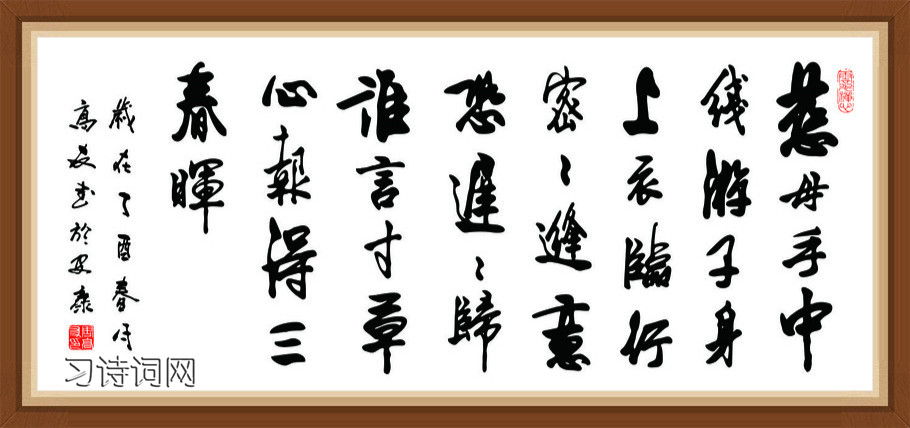 慈母手中
线游子身
上衣臨行
密〻縫意
恐遲〻歸
誰言寸草
心報得三
春暉
歲在丁酉春月
高友於安康
习诗词网